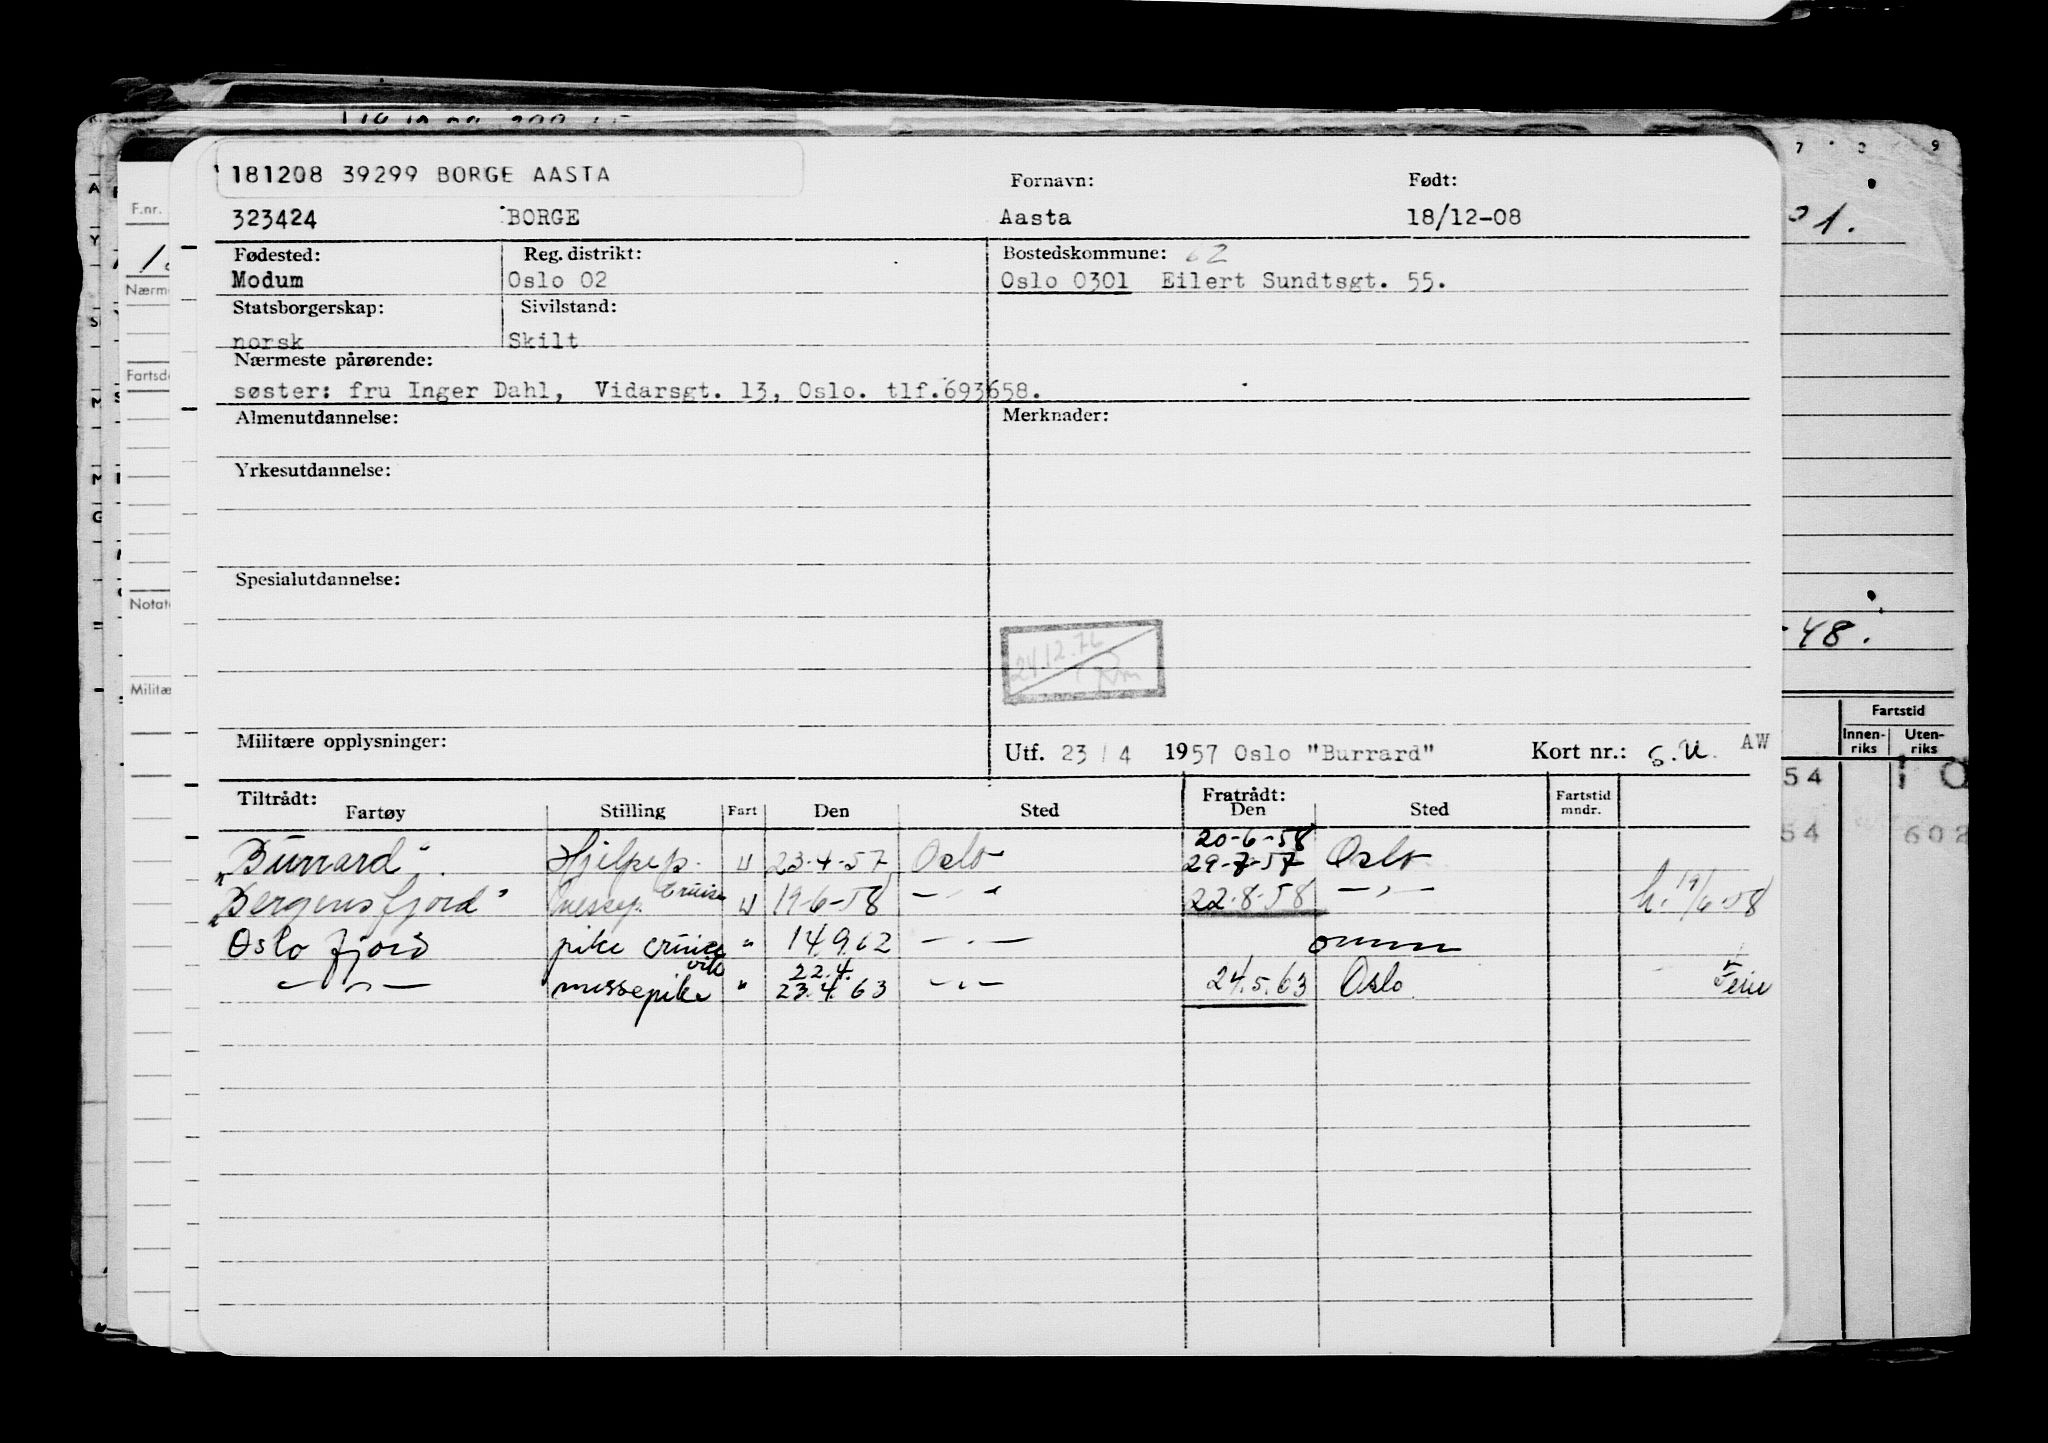 181208 39299 BORGE AASTA
Fornavn: Født:
323424 BORGE Aasta 18/12-08
Fødested: Reg. distrikt: Bostedskommune: 62
Modum Oslo 02 Oslo 0301 Eilert Sundtsgt. 55.
Statsborgerskap: Sivilstand:
norsk Skilt
Nærmeste pårørende:
søster: fru Inger Dahl, Vidarsgt. 13, Oslo. tlf.693658.
Almenutdannelse: Merknader:
Yrkesutdannelse:
Spesialutdannelse:
24.12.76
Militære opplysninger:
Utf. 23/4 1957 Oslo "Burrard" Kort nr.: AW
Tiltrådt: Fratrådt:
Fartøy Stilling Fart Den Sted Den Sted Fartstid mndr.
20-6-58
"Burrard" Hjelpep. U 23-4-57 Oslo 29-7-57 Oslo
"Bergensfjord" messep. Cruise U 19-6-58 — " — 22-8-58 — " — h. 19/6-58
Oslofjord pike cruise " 14.9.62 — " — omm
vik 22.4.
— " — messepike " 23.4.63 — " — 24.5.63 Oslo Ferie
F.nr.
Nærm
Fartsd
Notat
Militæ
7 9
-48.
Fartstid
Innen-riks Uten-riks
54 10
54 602